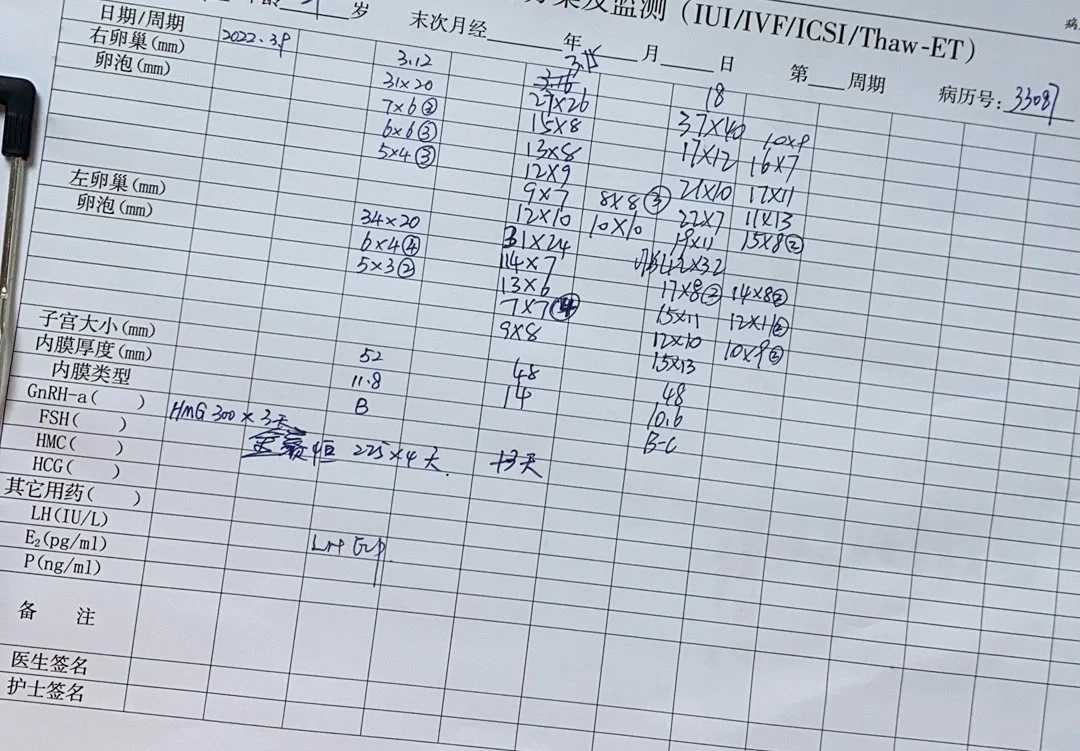 案及监测(IUI/IVF/ICSI/Thaw-ET)
岁 末次月经 年 月 日 第 周期 病历号: 33087
日期/周期 2022.3.9 3.12 3.15 18
右卵巢(mm) 31×20 27×26 37×40 10×9
卵泡(mm) 7×6② 15×8 17×12 16×7
6×6③ 13×8 21×10 17×11
5×4③ 12×9 22×7 11×13
9×7 8×8③ 19×11 15×8②
12×10 10×10
左卵巢(mm) 34×20 31×24 42×32
卵泡(mm) 6×4④ 14×7 17×8② 14×8②
5×3② 13×6 15×11 12×11②
7×7④ 12×10 10×9②
9×8 15×13
子宫大小(mm) 52 48 48
内膜厚度(mm) 11.8 14 10.6
内膜类型 B B-C
GnRH-a( ) HMG 300×3天
FSH( ) 恒 225×4天. +3天
HMC( )
HCG( )
其它用药( )
LH(IU/L)
E₂(pg/ml)
P(ng/ml)
备 注
医生签名
护士签名